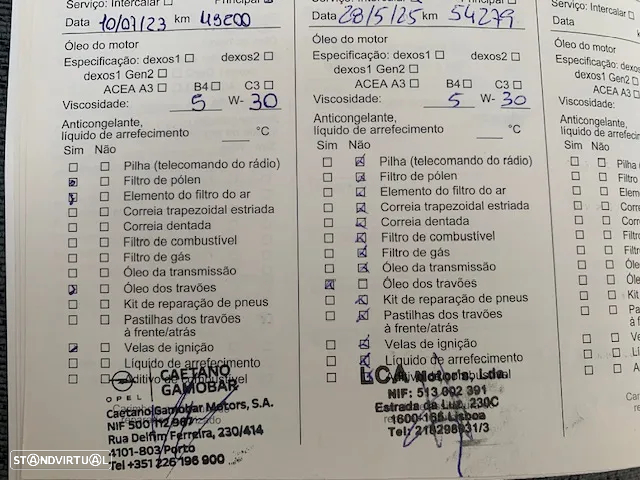 Serviço: Intercalar ☐ Principal
Data 10/07/23 km
Óleo do motor
Especificação: dexos1 ☐ dexos2 ☐
dexos1 Gen2 ☐
ACEA A3 ☐ B4 ☐ C3 ☐
Viscosidade: 5 W- 30
Anticongelante,
líquido de arrefecimento °C
Sim Não
Pilha (telecomando do rádio)
Filtro de pólen
Elemento do filtro do ar
Correia trapezoidal estriada
Correia dentada
Filtro de combustível
Filtro de gás
Óleo da transmissão
Óleo dos travões
Kit de reparação de pneus
Pastilhas dos travões
à frente/atrás
Velas de ignição
Líquido de arrefecimento
Aditivo de combustível
OPEL
CAETANO
GAMOBAR
Caetano Gamobar Motors, S.A.
NIF 500 112 967
Rua Delfim Ferreira, 230/414
4101-803 Porto
Tel +351 226 196 900
Serviço: Intercalar ☐ Principal
Data 28/5/25 km 54279
Óleo do motor
Especificação: dexos1 ☐ dexos2 ☐
dexos1 Gen2 ☐
ACEA A3 ☐ B4 ☐ C3 ☐
Viscosidade: 5 W- 30
Anticongelante,
líquido de arrefecimento °C
Sim Não
Pilha (telecomando do rádio)
Filtro de pólen
Elemento do filtro do ar
Correia trapezoidal estriada
Correia dentada
Filtro de combustível
Filtro de gás
Óleo da transmissão
Óleo dos travões
Kit de reparação de pneus
Pastilhas dos travões
à frente/atrás
Velas de ignição
Líquido de arrefecimento
LCA Motors, Lda
NIF: 513 002 391
Estrada da Luz, 230C
1600-166 Lisboa
Tel: 218298031/3
Serviço: Intercalar ☐
Data
Óleo do motor
Especificação: dexos
dexos1 Gen2
ACEA A3
Viscosidade:
Anticongelante,
líquido de arrefecim
Sim Não
STANDVIRTUAL